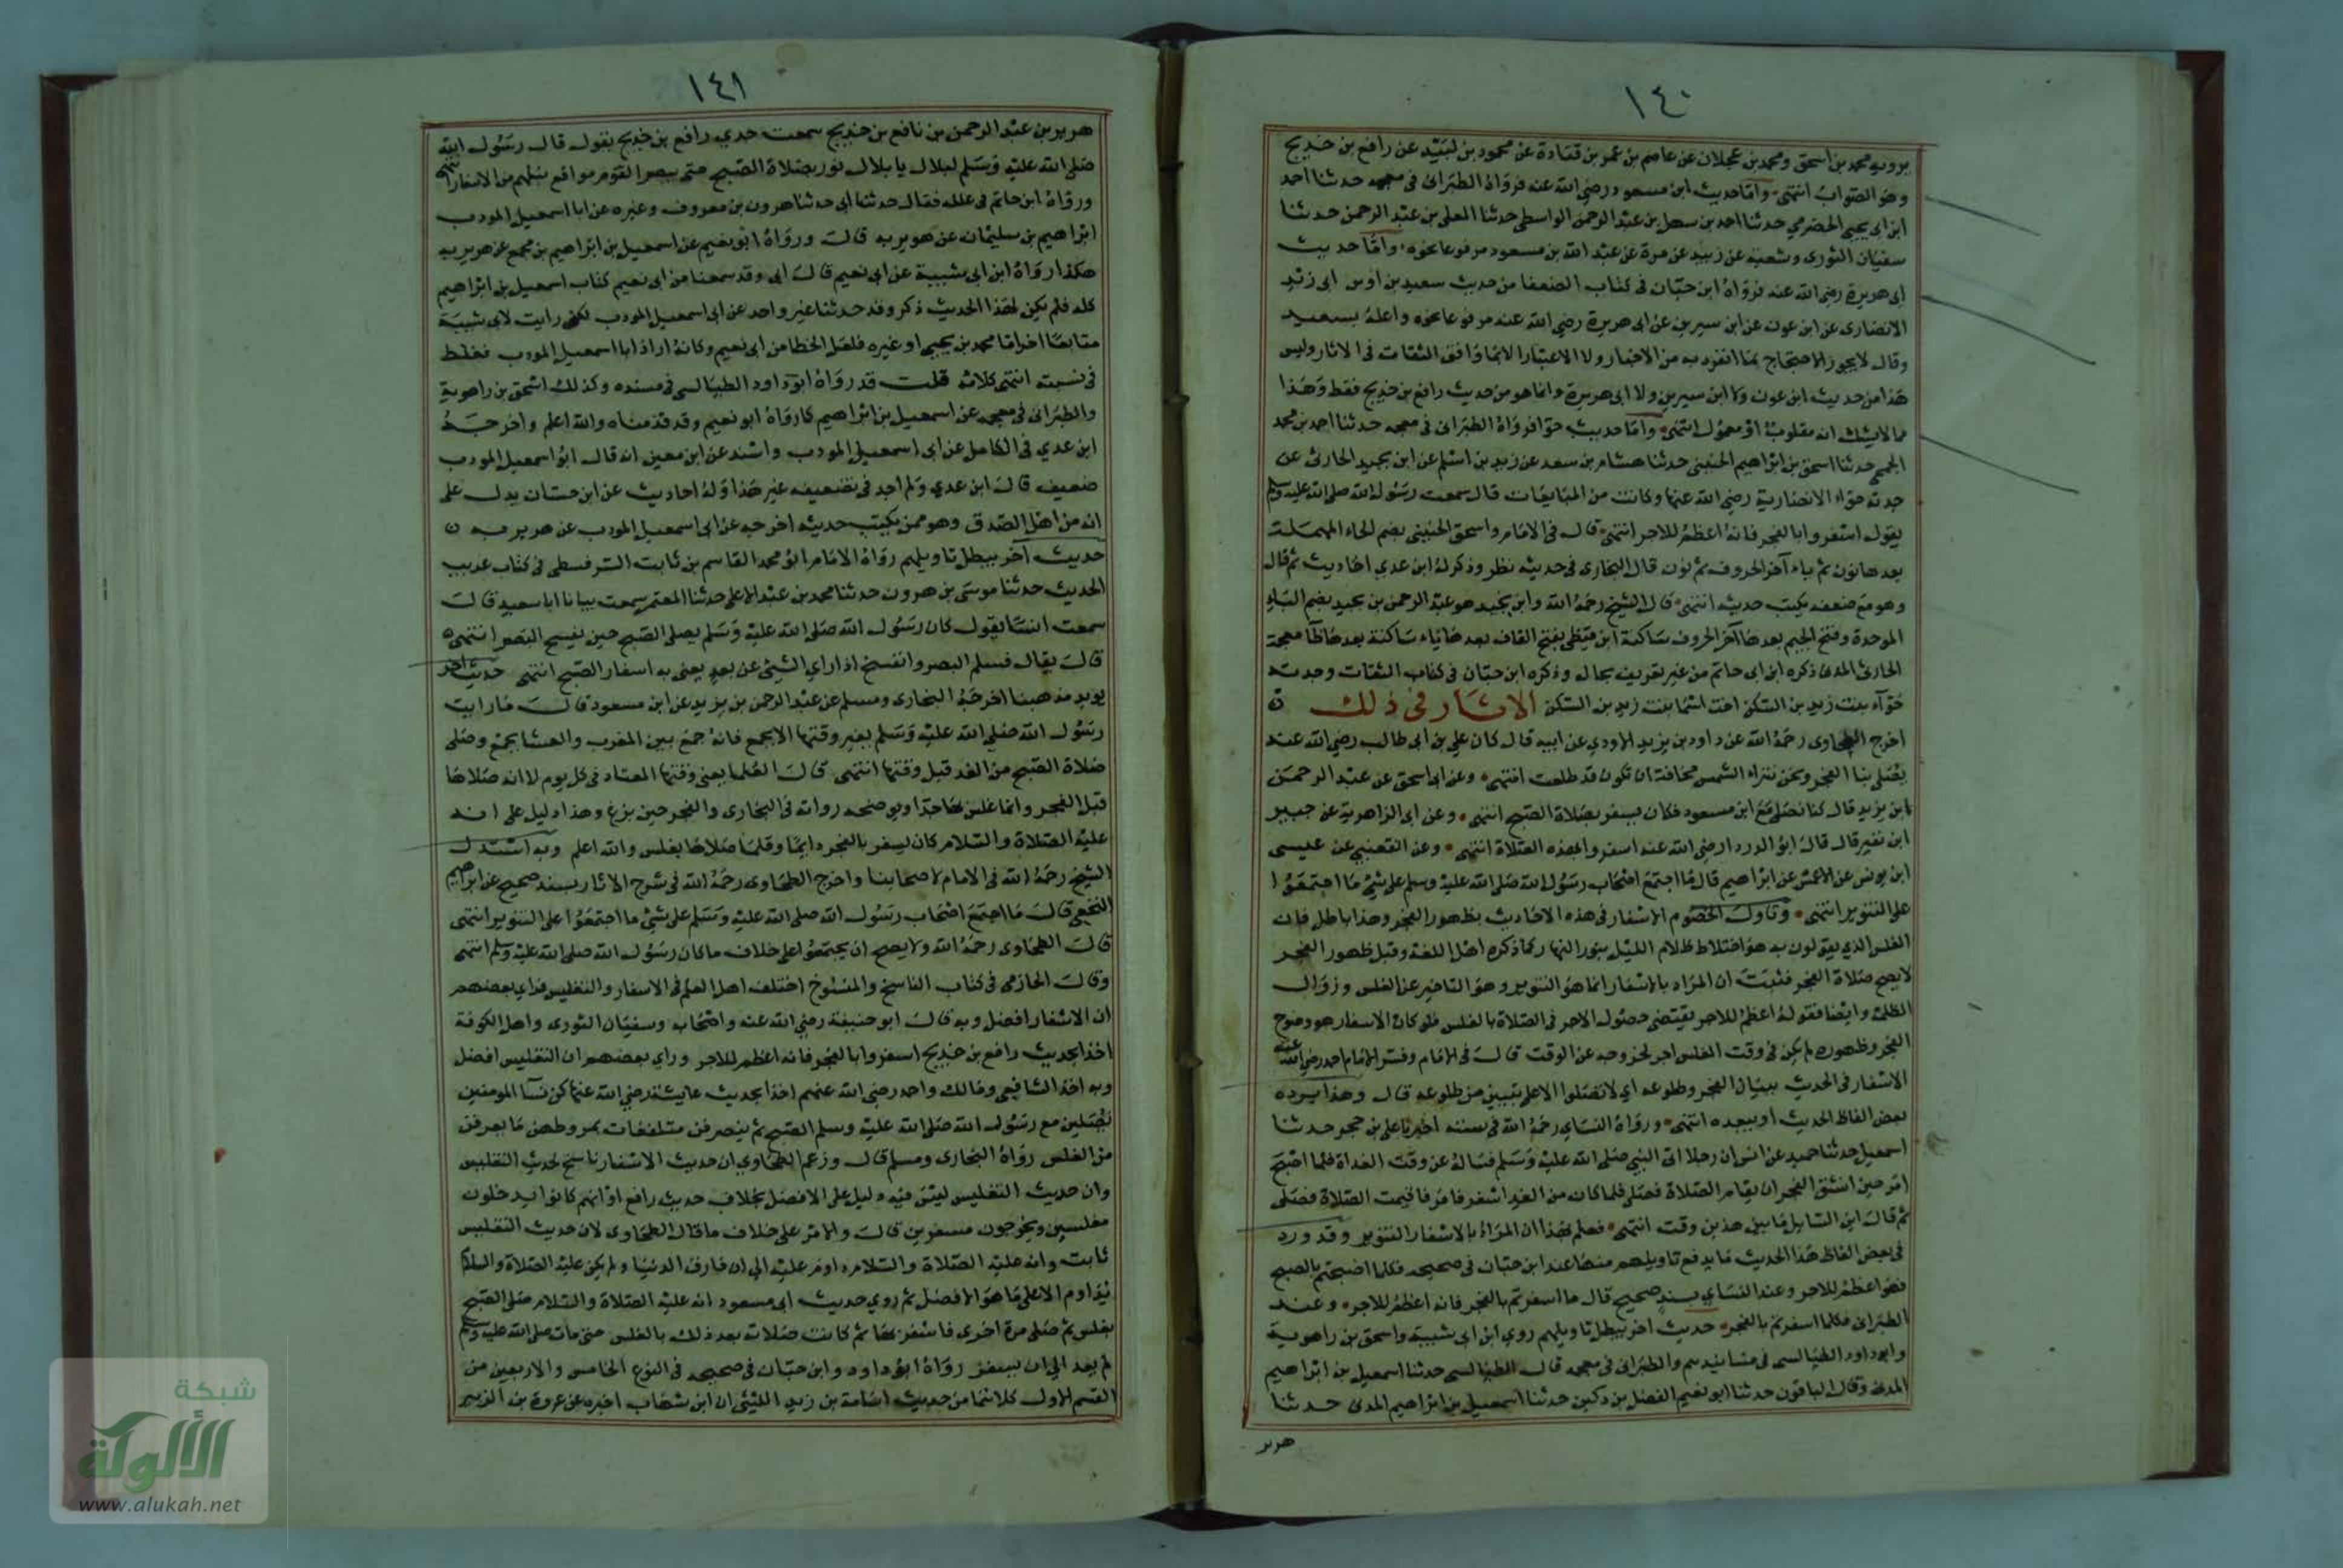 ١٤٠
يرويه محمد بن اسحق ومحمد بن عجلان عن عاصم بن عمر بن قتادة عن محمود بن لبيد عن رافع بن خديج
وهو الصواب انتهى وامّا حديث ابن مسعود رضي الله عنه فرواه الطبراني في معجمه حدثنا احمد
ابن ابي يحيى الحضرمي حدثنا احمد بن سهل بن عبد الرحمن الواسطي حدثنا المعلى بن عبد الرحمن حدثنا
سفيان الثوري وشعبة عن زبيد عن مرة عن عبد الله بن مسعود مرفوعا نحوه وامّا حديث
ابي هريرة رضي الله عنه فرواه ابن حبّان في كتاب الضعفا من حديث سعيد بن اوس ابي زيد
الانصاري عن ابن عون عن ابن سيرين عن ابي هريرة رضي الله عنه مرفوعا نحوه واعله بسعيد
وقال لا يجوز الاحتجاج بما انفرد به من الاخبار ولا الاعتبار الا بما وافق الثقات في الاثار وليس
هذا من حديث ابن عون ولا ابن سيرين ولا ابي هريرة وانما هو من حديث رافع بن خديج فقط وهذا
مما لا يشك انه مقلوب او معمول انتهى وامّا حديث حوا فرواه الطبراني في معجمه حدثنا احمد بن محمد
الجمحي حدثنا اسحق بن ابراهيم الحنيني حدثنا هشام بن سعد عن زيد بن اسلم عن ابن بجيد الحارثي عن
جدته حوّاء الانصارية رضي الله عنها وكانت من المبايعات قال سمعت رسول الله صلى الله عليه وسلم
يقول اسفروا بالفجر فانه اعظم للاجر انتهى قال في الامام واسحق الحنيني بضم الحاء المهملة
بعدها نون ثم ياء آخر الحروف ثم نون قال البخاري في حديثه نظر وذكر له ابن عدي احاديث ثم قال
وهو مع ضعفه يكتب حديثه انتهى قال الشيخ رحمه الله وابن بجيد هو عبد الرحمن بن بجيد بضم الباء
الموحدة وفتح الجيم بعدها آخر الحروف ساكنة ابن قيظي بفتح القاف بعدها ياء ساكنة بعدها ظا معجمة
الحارثي المدني ذكره ابن ابي حاتم من غير تعريف بحاله وذكره ابن حبّان في كتاب الثقات وجدته
حوّآء بنت زيد بن السكن اخت اسما بنت زيد بن السكن الاثار في ذلك ن
اخرج الطحاوي رحمه الله عن داود بن يزيد الاودي عن ابيه قال كان علي بن ابي طالب رضي الله عنه
يصلي بنا الفجر ونحن نتراء الشمس مخافة ان تكون قد طلعت انتهى وعن ابي اسحق عن عبد الرحمن
ابن يزيد قال كنا نصلي مع ابن مسعود فكان يسفر بصلاة الصبح انتهى وعن ابي الزاهرية عن جبير
ابن نفير قال قال ابو الدردا رضي الله عنه اسفروا بهذه الصلاة انتهى وعن القعنبي عن عيسى
ابن يونس عن الاعمش عن ابراهيم قال ما اجتمع اصحاب رسول الله صلى الله عليه وسلم على شئ ما اجتمعوا
على التنوير انتهى وتاول الخصوم الاسفار في هذه الاحاديث بظهور الفجر وهذا باطل فان
الغلس الذي يقولون به هو اختلاط ظلام الليل بنور النهار كما ذكره اهل اللغة وقبل ظهور الفجر
لا يصح صلاة الفجر فثبت ان المراد بالاسفار انما هو التنوير وهو التاخير عن الغلس وزوال
الظلمة وايضا فقوله اعظم للاجر يقتضي حصول الاجر في الصلاة بالغلس فلو كان الاسفار هو وضوح
الفجر وظهوره لم يكن في وقت الغلس اجر لخروجه عن الوقت قال في الامام وفسر الامام احمد رضي الله عنه
الاسفار في الحديث ببيان الفجر وطلوعه اي لا تصلوا الا على تبيين من طلوعه قال وهذا يرده
بعض الفاظ الحديث او يبعده انتهى ورواه النساي رحمه الله في سننه اخبرنا علي بن حجر حدثنا
اسمعيل حدثنا حميد عن انس ان رجلا اتى النبي صلى الله عليه وسلم فساله عن وقت الغداة فلما اصبح
امر حين انشق الفجر ان يقام الصلاة فصلى فلما كان من الغد اسفر فامر فاقيمت الصلاة فصلى
ثم قال اين السايل ما بين هذين وقت انتهى فعلم بهذا ان المراد بالاسفار التنوير وقد ورد
في بعض الفاظ هذا الحديث ما يدفع تاويلهم منها عند ابن حبّان في صحيحه فكلما اصبحتم بالصبح
فهو اعظم للاجر وعند النساي بسند صحيح قال ما اسفرتم بالفجر فانه اعظم للاجر وعند
الطبراني فكلما اسفرتم بالفجر حديث اخر يبطل تاويلهم روي ابن ابي شيبة واسحق بن راهوية
وابو داود الطيالسي في مسانيدهم والطبراني في معجمه قال الطيالسي حدثنا اسمعيل بن ابراهيم
المدني وقال الباقون حدثنا ابو نعيم الفضل بن دكين حدثنا اسمعيل بن ابراهيم المدني حدثنا
هرير
١٤١
هرير بن عبد الرحمن بن نافع بن خديج سمعت جدي رافع بن خديج يقول قال رسول الله
صلى الله عليه وسلم لبلال يا بلال نور بصلاة الصبح حتى يبصر القوم مواقع نبلهم من الاسفار انتهى
ورواه ابن حاتم في علله فقال حدثنا ابي حدثنا هرون بن معروف وغيره عن ابا اسمعيل المودب
ابراهيم بن سليمان عن هرير به قال ورواه ابو نعيم عن اسمعيل بن ابراهيم بن مجمع عن هرير به
هكذا رواه ابن ابي شيبة عن ابي نعيم قال ابي وقد سمعنا من ابي نعيم كتاب اسمعيل بن ابراهيم
كله فلم يكن لهذا الحديث ذكر وقد حدثنا غير واحد عن ابي اسمعيل المودب لكني رايت لابي شيبة
متابعا اخر اما محمد بن يحيى او غيره فلعل الخطا من ابي نعيم وكانه اراد ابا اسمعيل المودب فغلط
في نسبته انتهى كلامه قلت قد رواه ابو داود الطيالسي في مسنده وكذلك اسحق بن راهوية
والطبراني في معجمه عن اسمعيل بن ابراهيم كما رواه ابو نعيم وقد قدمناه والله اعلم واخرجه
ابن عدي في الكامل عن ابي اسمعيل المودب واسند عن ابن معين انه قال ابو اسمعيل المودب
ضعيف قال ابن عدي ولم اجد في تضعيفه غير هذا وله احاديث عن ابن حسان يدل على
انه من اهل الصدق وهو ممن يكتب حديثه اخرجه عن ابي اسمعيل المودب عن هرير به ن
حديث آخر يبطل تاويلهم رواه الامام ابو محمد القاسم بن ثابت السرقسطي في كتاب غريب
الحديث حدثنا موسى بن هرون حدثنا محمد بن عبد الاعلى حدثنا المعتمر سمعت بيانا ابا سعيد قال
سمعت انسا يقول كان رسول الله صلى الله عليه وسلم يصلي الصبح حين يفسح البصر انتهى
قال يقال فسح البصر وانفسح اذا راي الشئ عن بعد يعني به اسفار الصبح انتهى حديث اخر
يويد مذهبنا اخرجه البخاري ومسلم عن عبد الرحمن بن يزيد عن ابن مسعود قال ما رايت
رسول الله صلى الله عليه وسلم بغير وقتها الا بجمع فانه جمع بين المغرب والعشا بجمع وصلى
صلاة الصبح من الغد قبل وقتها انتهى قال العلما يعني وقتها المعتاد في كل يوم لا انه صلاها
قبل الفجر وانما غلس بها جدا ويوضحه رواته في البخاري والفجر حين بزغ وهذا دليل على انه
عليه الصلاة والسلام كان يسفر بالفجر دايما وقلما صلاها بغلس والله اعلم وبه استدل
الشيخ رحمه الله في الامام لاصحابنا واخرج الطحاوي رحمه الله في شرح الاثار بسند صحيح عن ابراهيم
النخعي قال ما اجتمع اصحاب رسول الله صلى الله عليه وسلم على شئ ما اجتمعوا على التنوير انتهى
قال الطحاوي رحمه الله ولا يصح ان يجتمعوا على خلاف ما كان رسول الله صلى الله عليه وسلم انتهى
وقال الحازمي في كتاب الناسخ والمنسوخ اختلف اهل العلم في الاسفار والتغليس فراي بعضهم
ان الاسفار افضل وبه قال ابو حنيفة رضي الله عنه واصحابه وسفيان الثوري واهل الكوفة
اخذا بحديث رافع بن خديج اسفروا بالفجر فانه اعظم للاجر وراي بعضهم ان التغليس افضل
وبه اخذ الشافعي ومالك واحمد رضي الله عنهم اخذا بحديث عايشة رضي الله عنها كن نسآ المومنين
يصلين مع رسول الله صلى الله عليه وسلم الصبح ثم ينصرفن متلفعات بمروطهن ما يعرفن
من الغلس رواه البخاري ومسلم قال وزعم الطحاوي ان حديث الاسفار ناسخ لحديث التغليس
وان حديث التغليس ليس فيه دليل على الافضل بخلاف حديث رافع او انهم كانوا يدخلون
مغلسين ويخرجون مسفرين قال والامر على خلاف ما قال الطحاوي لان حديث التغليس
ثابت وانه عليه الصلاة والسلام داوم عليه الى ان فارق الدنيا ولم يكن عليه الصلاة والسلام
يداوم الا على ما هو الافضل ثم روي حديث ابي مسعود انه عليه الصلاة والسلام صلى الصبح
بغلس ثم صلى مرة اخرى فاسفر بها ثم كانت صلاته بعد ذلك بالغلس حتى مات صلى الله عليه وسلم
لم يعد الى ان يسفر رواه ابو داود وابن حبّان في صحيحه في النوع الخامس والاربعين من
القسم الاول كلاهما من حديث اسامة بن زيد الليثي ان ابن شهاب اخبره عن عروة بن الزبير
شبكة
الألوكة
www.alukah.net